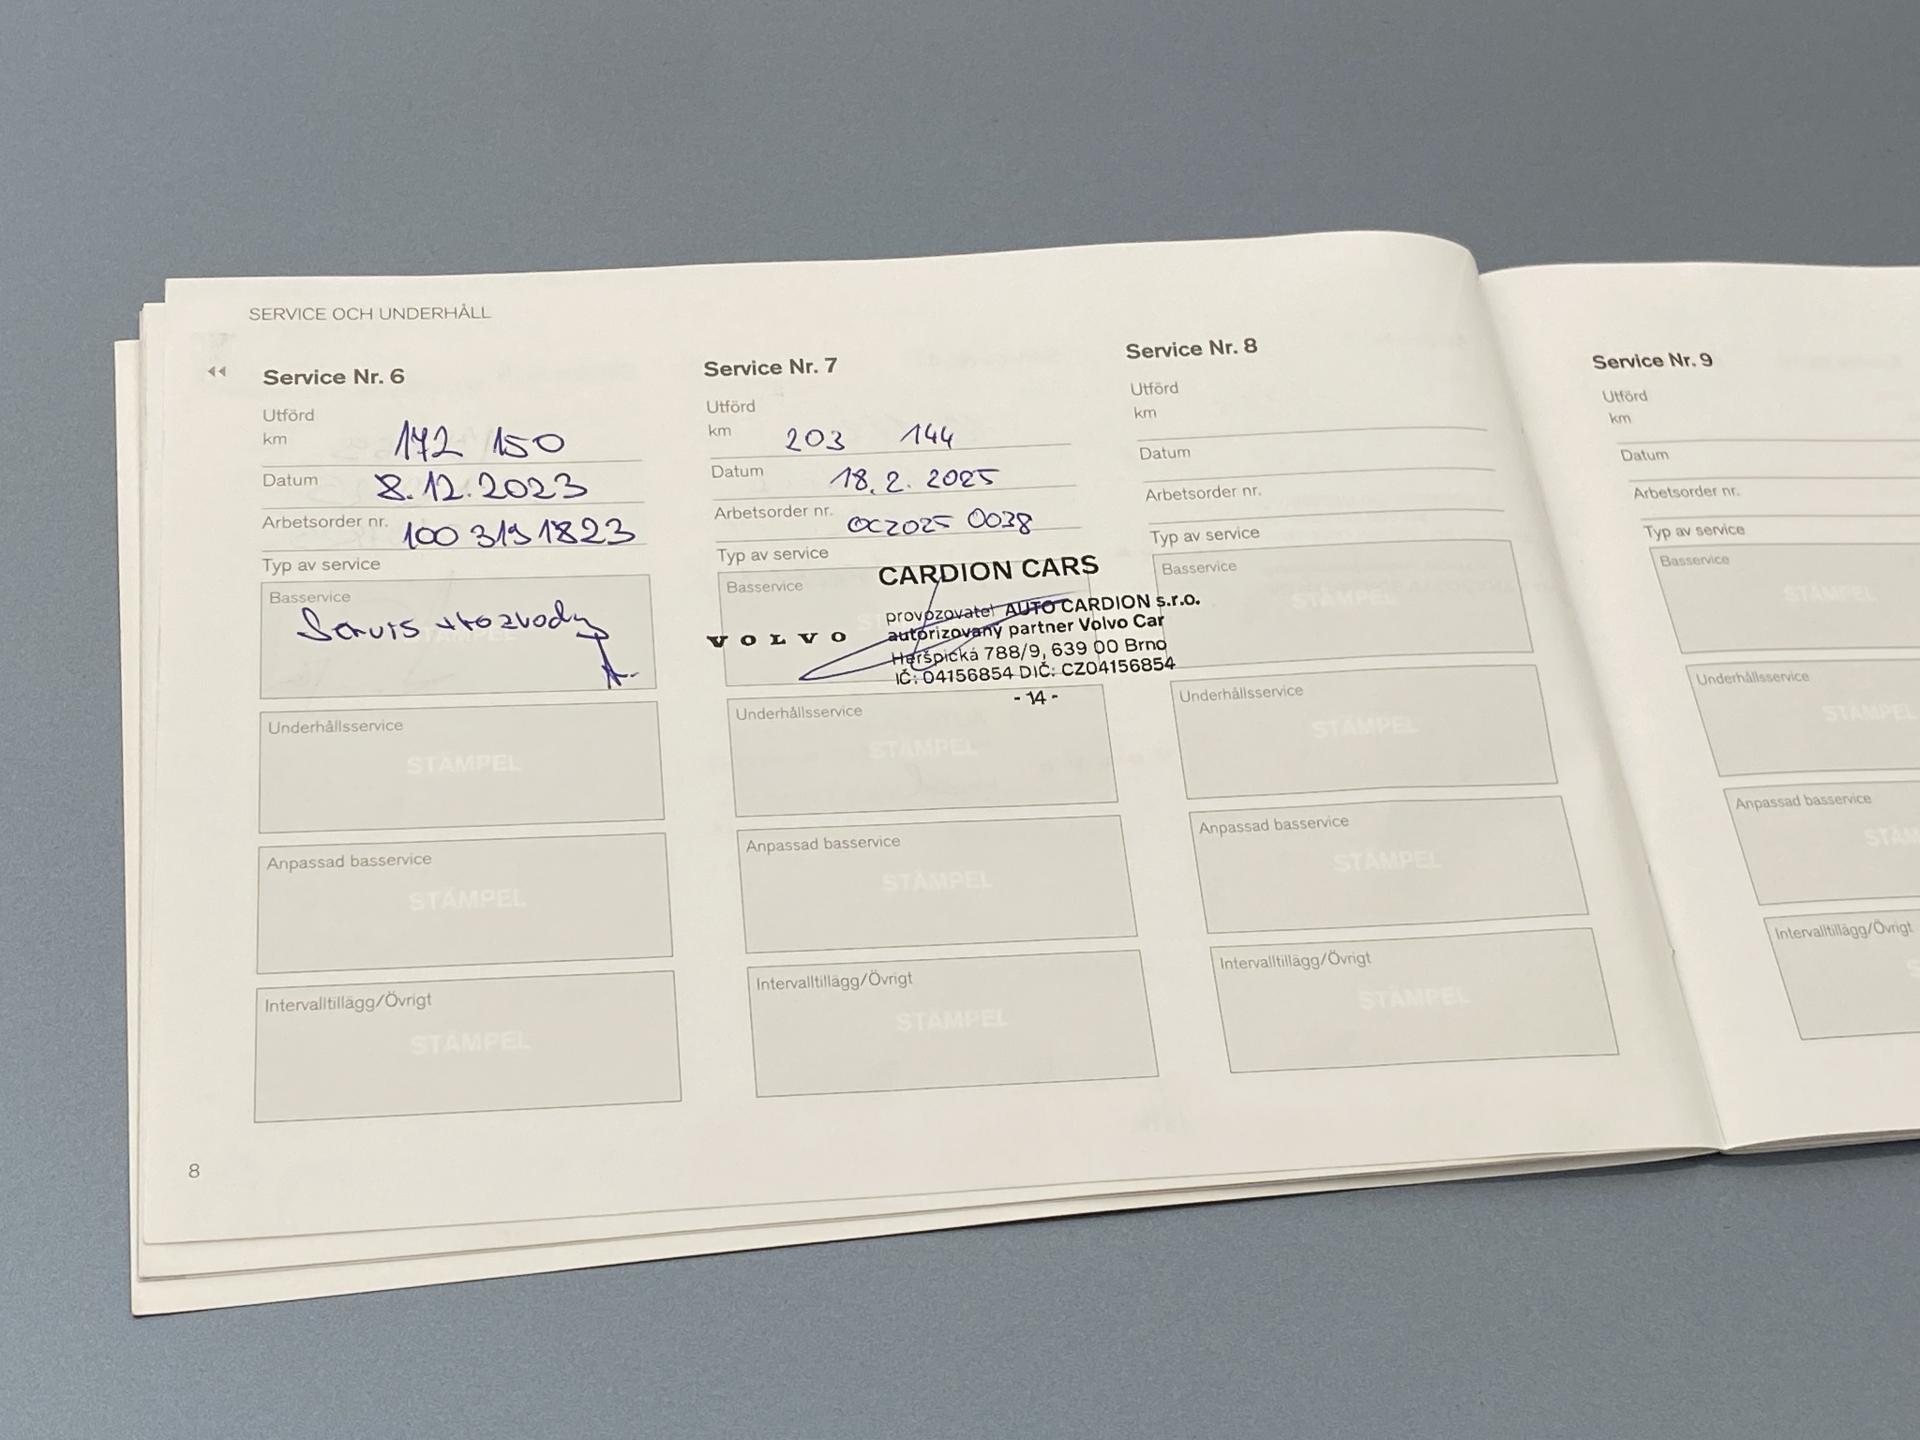 SERVICE OCH UNDERHÅLL
Service Nr. 6
Utförd
km 172 150
Datum 8.12.2023
Arbetsorder nr. 100 319 1823
Typ av service
Basservice
Servis + rozvody
Underhållsservice
STÄMPEL
Anpassad basservice
STÄMPEL
Intervalltillägg/Övrigt
STÄMPEL
8
Service Nr. 7
Utförd
km 203 144
Datum 18. 2. 2025
Arbetsorder nr. OCZ025 0038
Typ av service
Basservice
CARDION CARS
provozovatel AUTO CARDION s.r.o.
VOLVO autorizovaný partner Volvo Car
Heršpická 788/9, 639 00 Brno
IČ: 04156854 DIČ: CZ04156854
- 14 -
Underhållsservice
STÄMPEL
Anpassad basservice
STÄMPEL
Intervalltillägg/Övrigt
STÄMPEL
Service Nr. 8
Utförd
km
Datum
Arbetsorder nr.
Typ av service
Basservice
STÄMPEL
Underhållsservice
STÄMPEL
Anpassad basservice
STÄMPEL
Intervalltillägg/Övrigt
STÄMPEL
Service Nr. 9
Utförd
km
Datum
Arbetsorder nr.
Typ av service
Basservice
STÄMPEL
Underhållsservice
STÄMPEL
Anpassad basservice
STÄM
Intervalltillägg/Övrigt